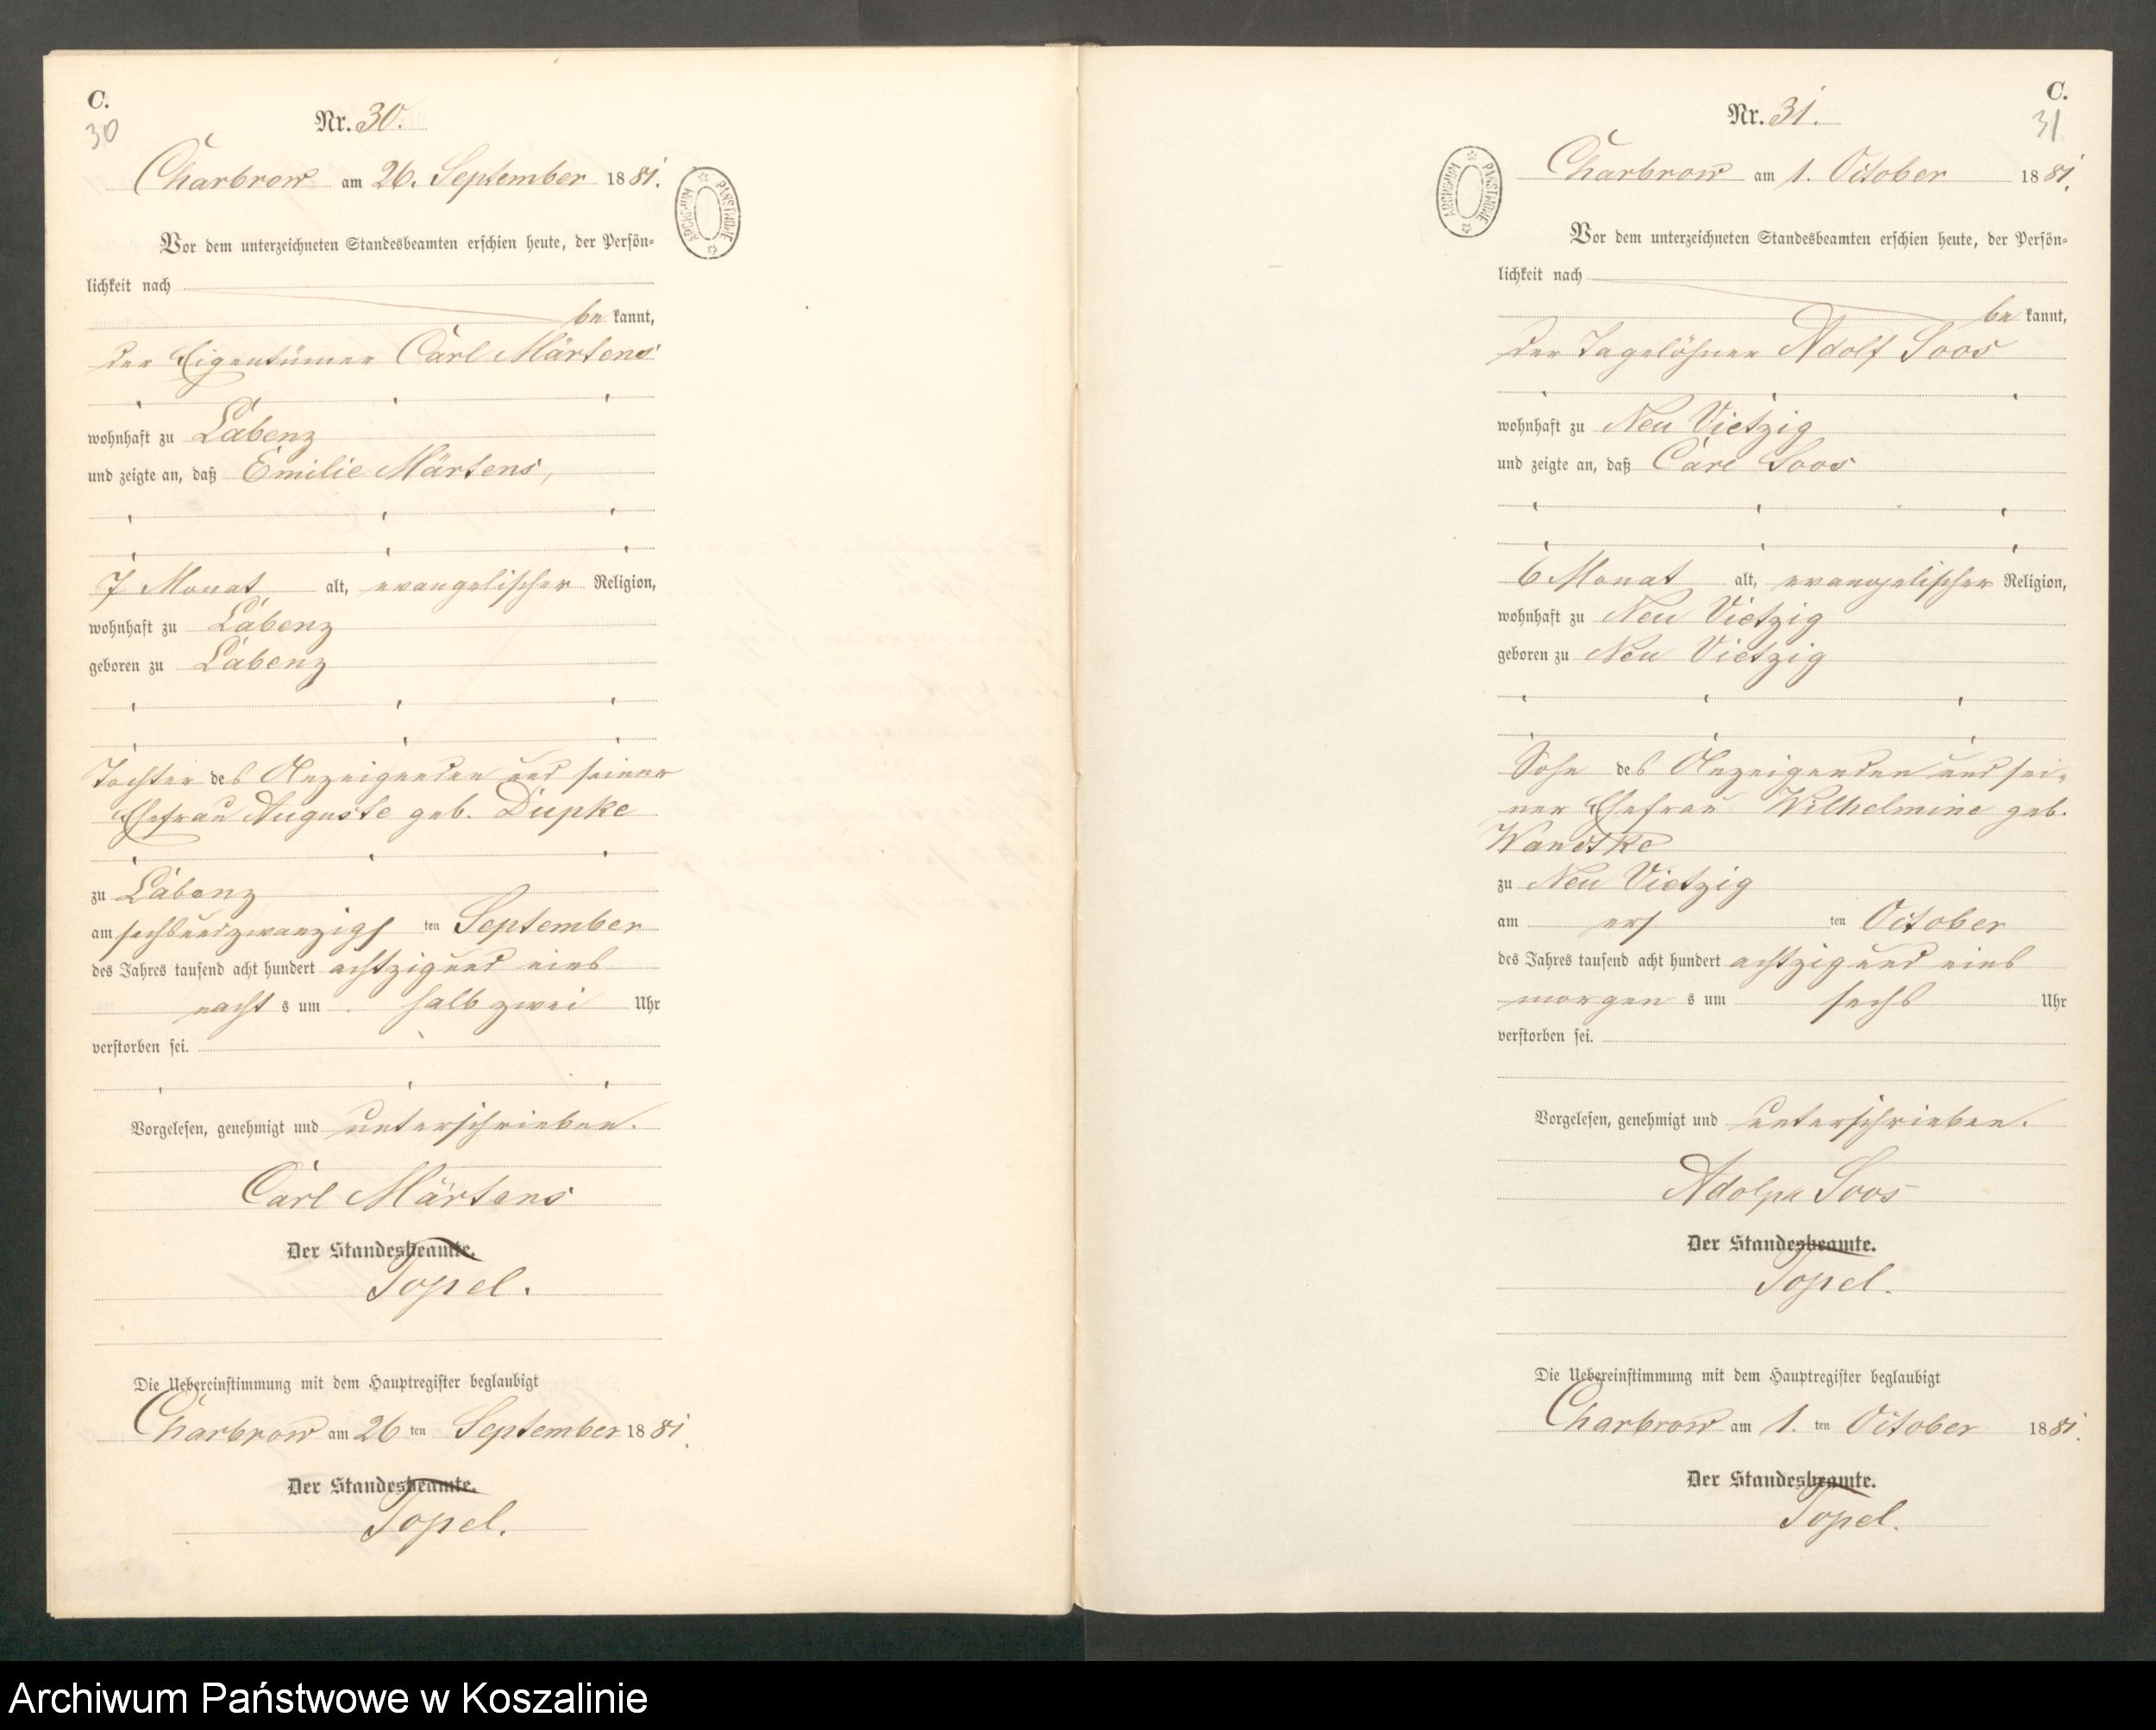 C.
30
Nr. 30.
Charbrow am 26. September 1881.
ARCHIWUM PAŃSTWOWE
Vor dem unterzeichneten Standesbeamten erschien heute, der Persön=
lichkeit nach
be kannt,
der Eigentümer Carl Märtens
wohnhaft zu Labenz
und zeigte an, daß Emilie Märtens,
7 Monat alt, evangelischer Religion,
wohnhaft zu Labenz
geboren zu Labenz
Tochter des Anzeigenden und seiner
Ehefrau Auguste geb. Dupke
zu Labenz
am sechsundzwanzigs ten September
des Jahres tausend acht hundert achtzig und eins
nacht s um halb zwei Uhr
verstorben sei.
Vorgelesen, genehmigt und unterschrieben.
Carl Märtens
Der Standesbeamte.
Topel.
Die Uebereinstimmung mit dem Hauptregister beglaubigt
Charbrow am 26 ten September 1881.
Der Standesbeamte.
Topel.
C.
31
Nr. 31.
Charbrow am 1. October 1881.
ARCHIWUM PAŃSTWOWE
Vor dem unterzeichneten Standesbeamten erschien heute, der Persön=
lichkeit nach
be kannt,
der Tagelöhner Adolf Soos
wohnhaft zu Neu Vietzig
und zeigte an, daß Carl Soos
6 Monat alt, evangelischer Religion,
wohnhaft zu Neu Vietzig
geboren zu Neu Vietzig
Sohn des Anzeigenden und sei=
ner Ehefrau Wilhelmine geb.
zu Neu Vietzig
am ers ten October
des Jahres tausend acht hundert achtzig und eins
morgen s um sechs Uhr
verstorben sei.
Vorgelesen, genehmigt und unterschrieben.
Adolph Soos
Der Standesbeamte.
Topel.
Die Uebereinstimmung mit dem Hauptregister beglaubigt
Charbrow am 1. ten October 1881.
Der Standesbeamte.
Topel.
Archiwum Państwowe w Koszalinie